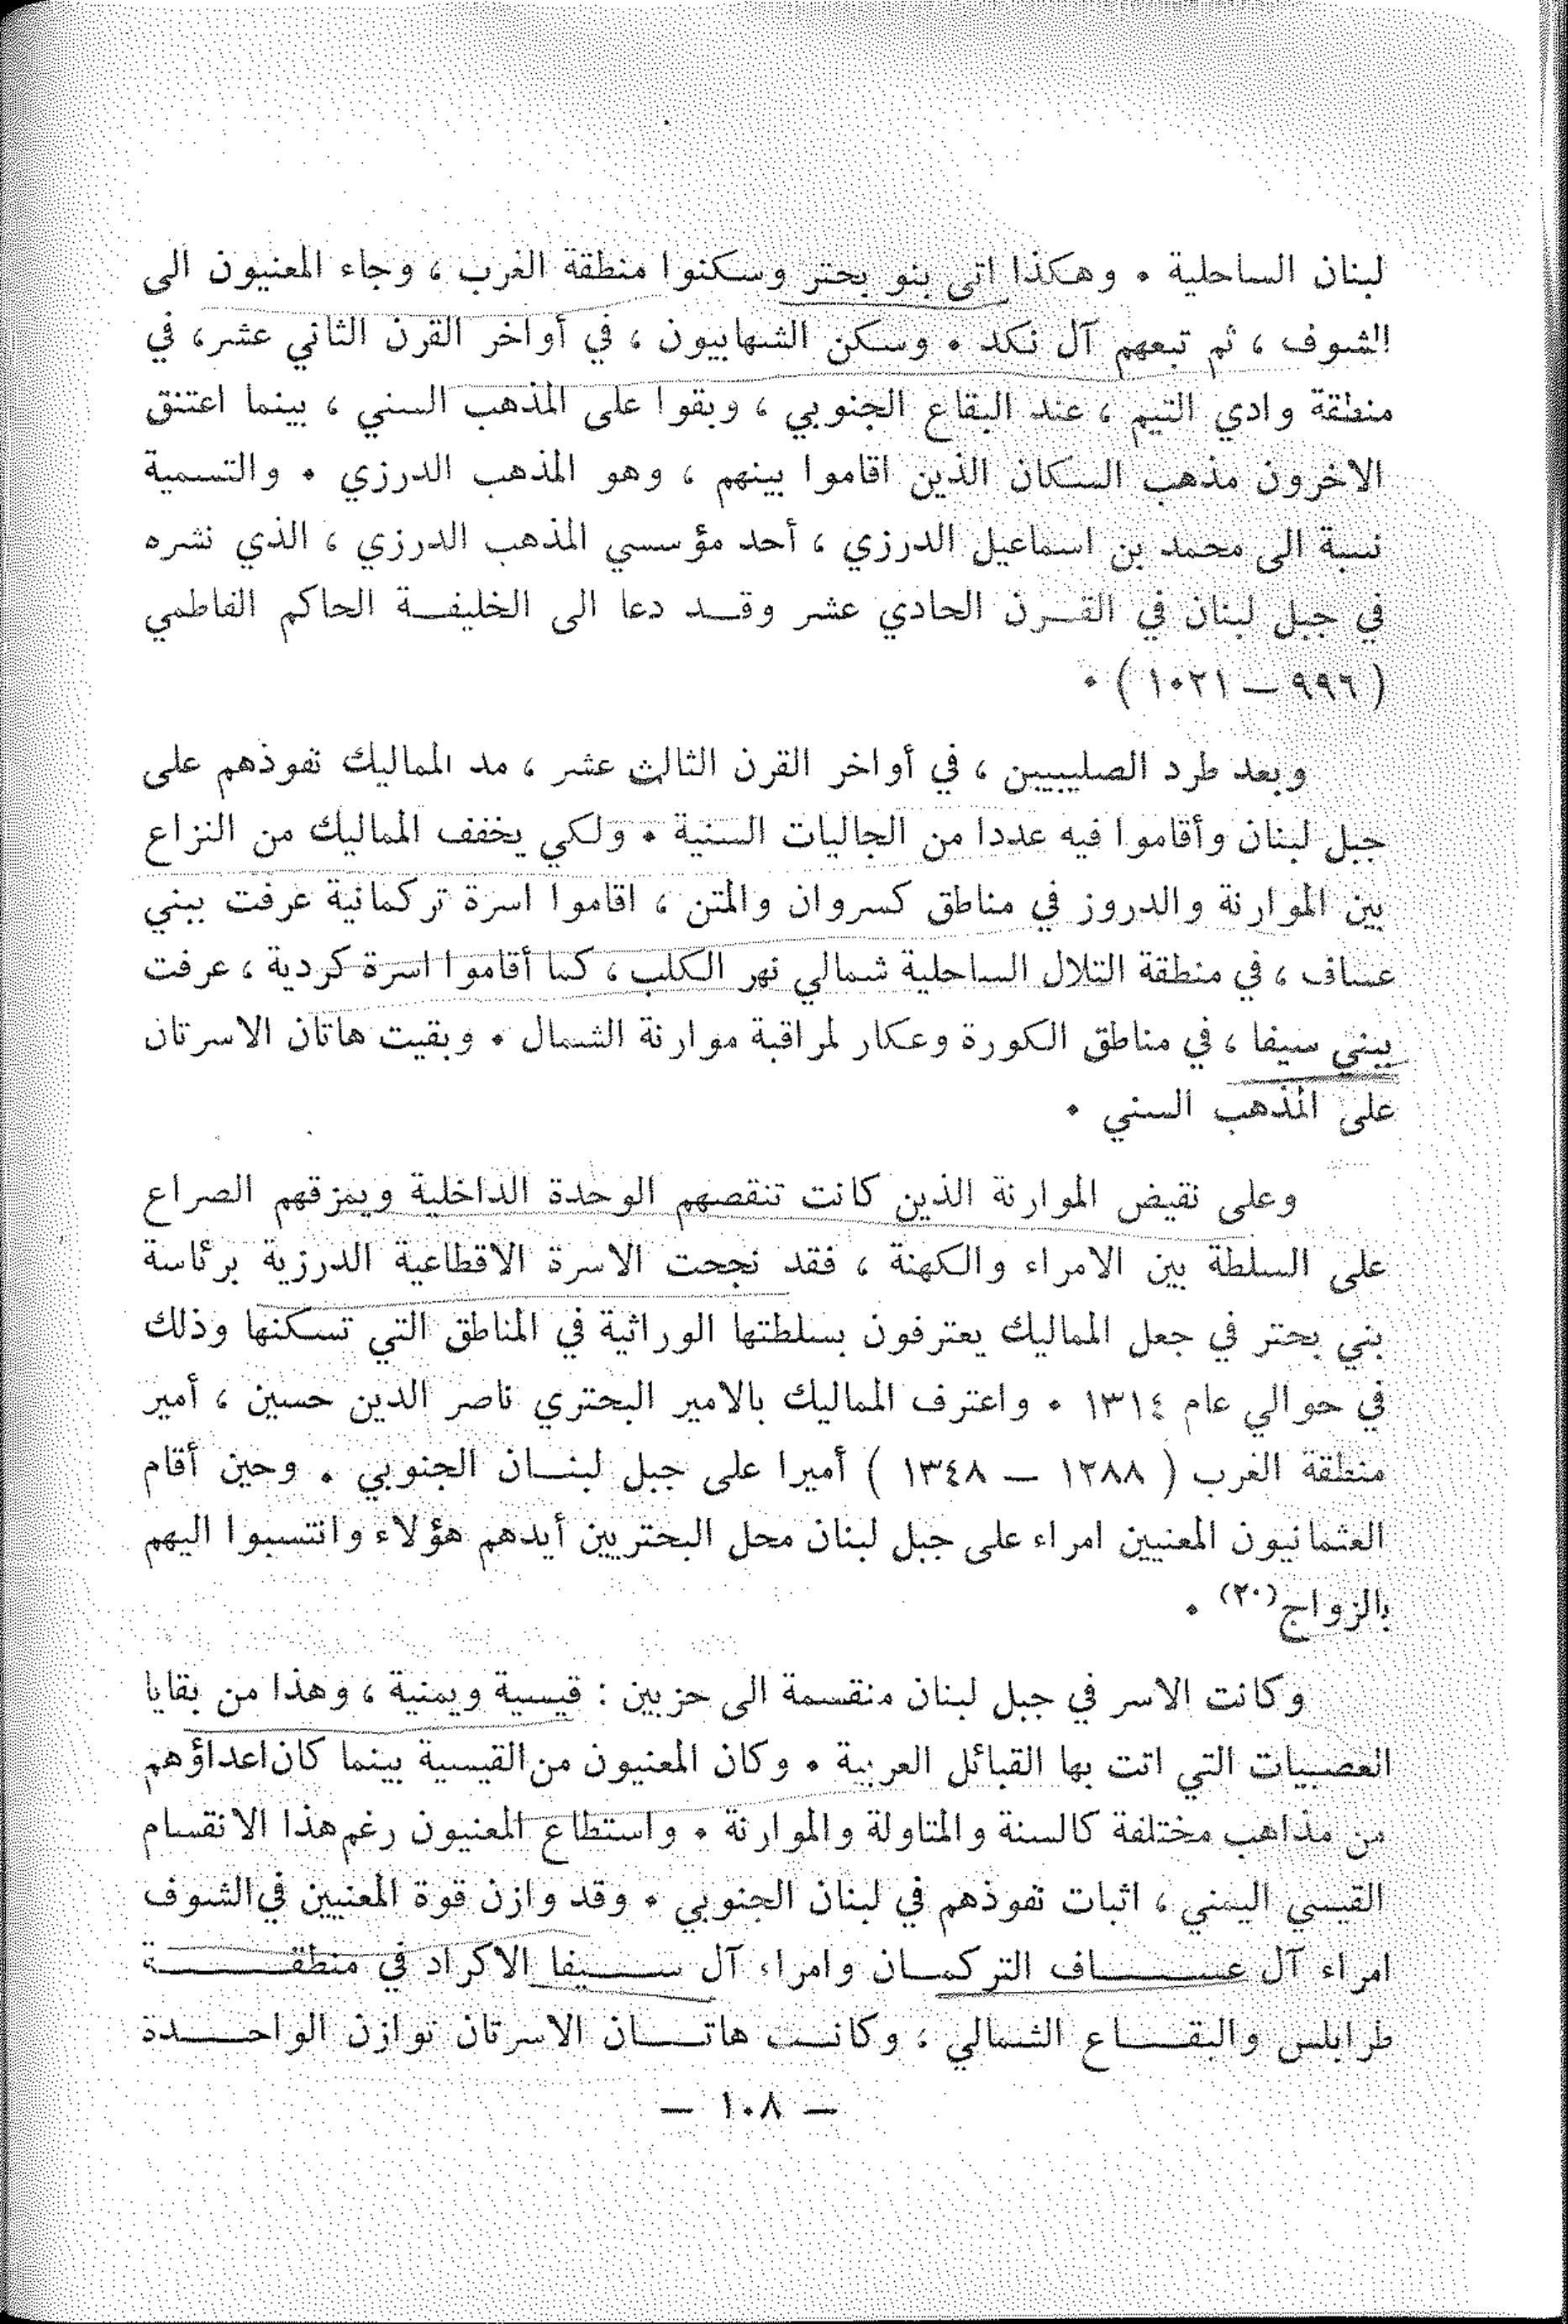 لبنان الساحلية . وهكذا اتى بنو بحتر وسكنوا منطقة الغرب ، وجاء المعنيون الى
الشوف ، ثم تبعهم آل نكد . وسكن الشهابيون ، في أواخر القرن الثاني عشر، في
منطقة وادي التيم ، عند البقاع الجنوبي ، وبقوا على المذهب السني ، بينما اعتنق
الاخرون مذهب السكان الذين اقاموا بينهم ، وهو المذهب الدرزي . والتسمية
نسبة الى محمد بن اسماعيل الدرزي ، أحد مؤسسي المذهب الدرزي ، الذي نشره
في جبل لبنان في القـرن الحادي عشر وقـد دعا الى الخليفـة الحاكم الفاطمي
( ٩٩٦ – ١٠٢١ ) .
وبعد طرد الصليبيين ، في أواخر القرن الثالث عشر ، مد المماليك نفوذهم على
جبل لبنان وأقاموا فيه عددا من الجاليات السنية . ولكي يخفف المماليك من النزاع
بين الموارنة والدروز في مناطق كسروان والمتن ، اقاموا اسرة تركمانية عرفت ببني
عساف ، في منطقة التلال الساحلية شمالي نهر الكلب ، كما أقاموا اسرة كردية ، عرفت
ببني سيفا ، في مناطق الكورة وعكار لمراقبة موارنة الشمال . وبقيت هاتان الاسرتان
على المذهب السني .
وعلى نقيض الموارنة الذين كانت تنقصهم الوحدة الداخلية ويمزقهم الصراع
على السلطة بين الامراء والكهنة ، فقد نجحت الاسرة الاقطاعية الدرزية برئاسة
بني بحتر في جعل المماليك يعترفون بسلطتها الوراثية في المناطق التي تسكنها وذلك
في حوالي عام ١٣١٤ . واعترف المماليك بالامير البحتري ناصر الدين حسين ، أمير
منطقة الغرب ( ١٢٨٨ – ١٣٤٨ ) أميرا على جبل لبنـان الجنوبي . وحين أقام
العثمانيون المعنيين امراء على جبل لبنان محل البحتريين أيدهم هؤلاء وانتسبوا اليهم
بالزواج(٢٠) .
وكانت الاسر في جبل لبنان منقسمة الى حزبين : قيسية ويمنية ، وهذا من بقايا
العصبيات التي اتت بها القبائل العربية . وكان المعنيون من القيسية بينما كان اعداؤهم
من مذاهب مختلفة كالسنة والمتاولة والموارنة . واستطاع المعنيون رغم هذا الانقسام
القيسي اليمني ، اثبات نفوذهم في لبنان الجنوبي . وقد وازن قوة المعنيين في الشوف
امراء آل عسـاف التركمـان وامراء آل سـيفا الاكراد في منطقـة
طرابلس والبقـاع الشمالي ، وكانـت هاتـان الاسرتان توازن الواحـدة
– ١٠٨ –